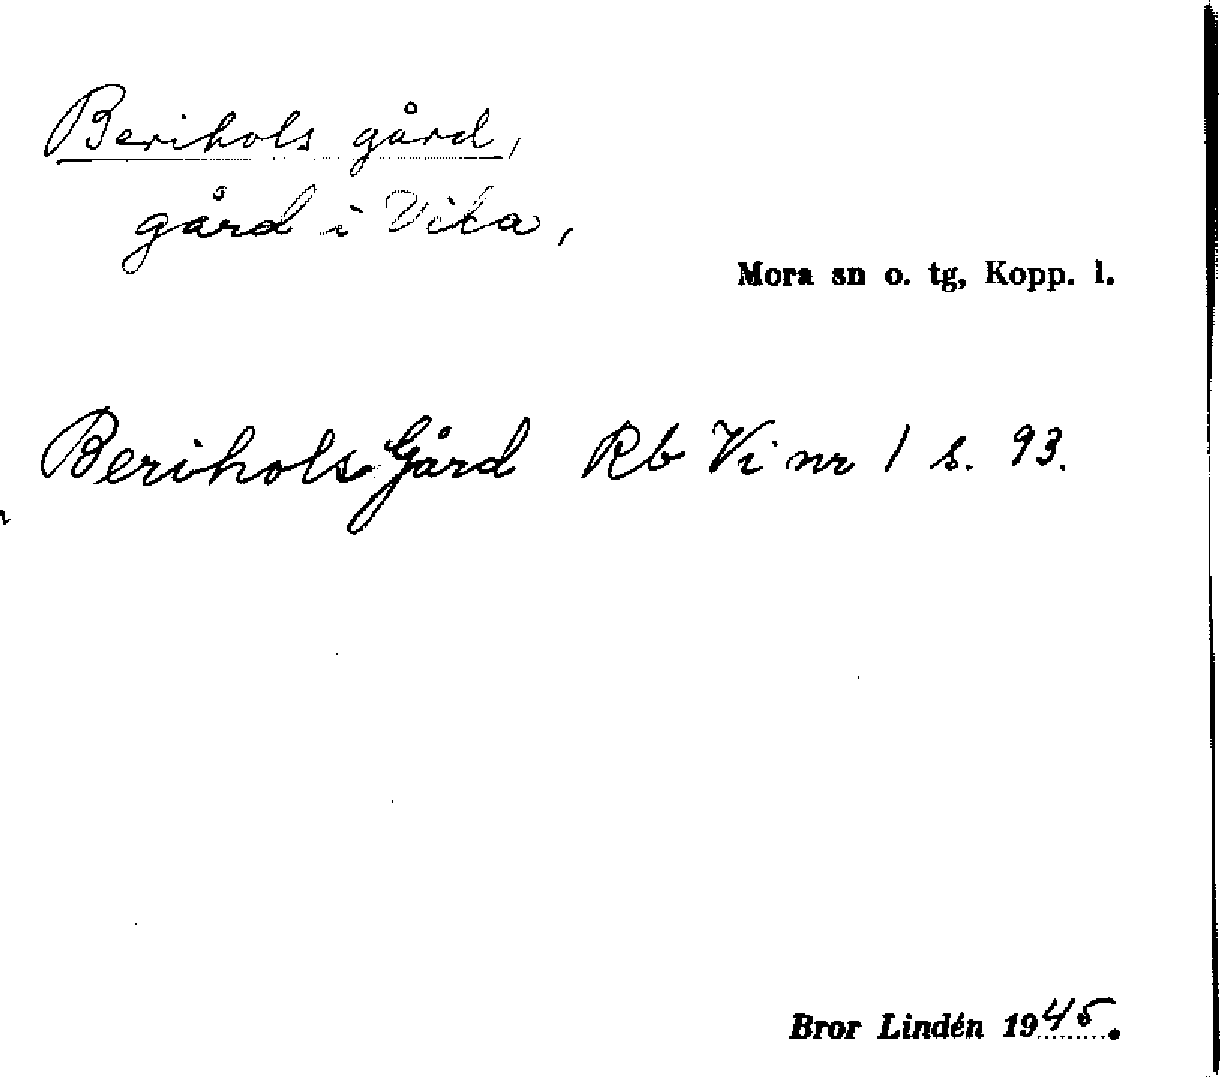 Berihols gård,
gård i Vika,
Mora sn o. tg, Kopp. l.
Berihols Gård Rb Vi nr 1 s. 93.
Bror Lindén 1945.